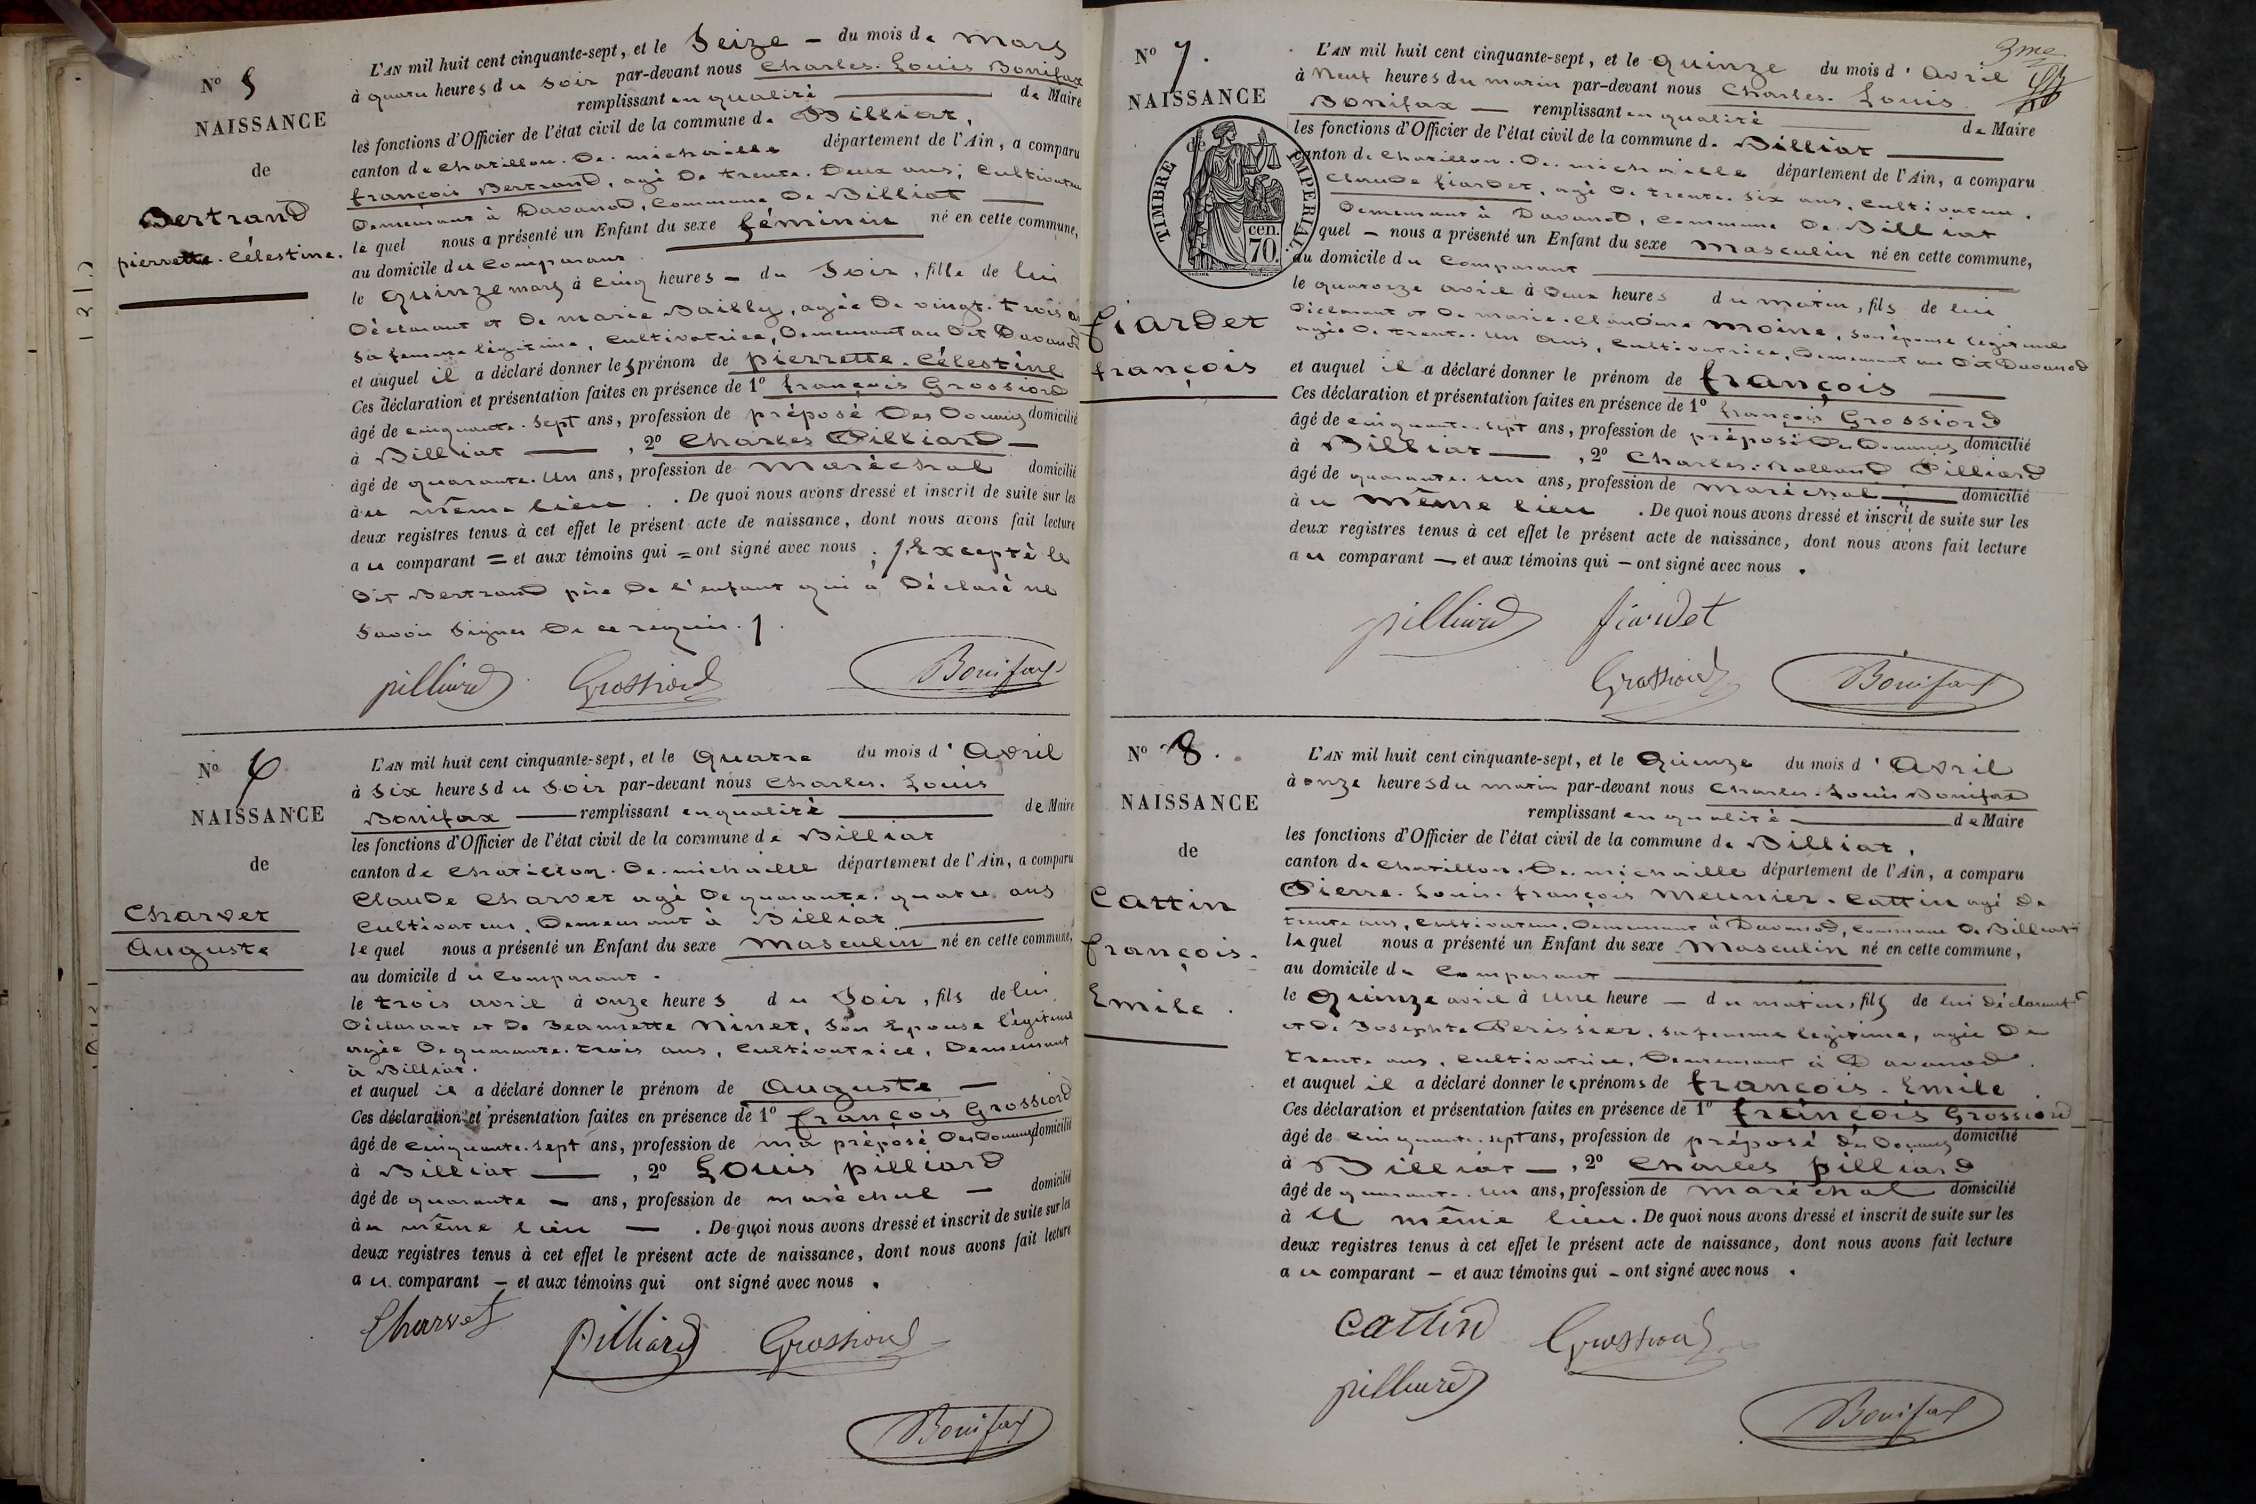 N° 5
NAISSANCE
de
Bertrand
pierrette. Célestine.
L'AN mil huit cent cinquante-sept, et le Seize — du mois de Mars
à quatre heures du Soir par-devant nous Charles. Louis Bonifax
remplissant en qualité de Maire
les fonctions d'Officier de l'état civil de la commune de Billiat,
canton de Chatillon. De. michaille département de l'Ain, a comparu
françois Bertrand, agé De trente. Deux ans; Cultivateur
Demeurant à Davanod, Commune De Billiat
le quel nous a présenté un Enfant du sexe féminin né en cette commune,
au domicile du Comparant
le quinze mars à Cinq heures — du Soir, fille de lui
Déclarant et De marie Bailly, agée De vingt. trois ans
Sa femme légitime, Cultivatrice, Demeurant au Dit Davanod
et auquel il a déclaré donner les prénom de pierrette. Célestine
Ces déclaration et présentation faites en présence de 1° françois Grossiord
âgé de cinquante. Sept ans, profession de préposé Des Douanes domicilié
à Billiat —, 2° Charles Pilliard —
âgé de quarante. un ans, profession de Maréchal domicilié
au même lieu. De quoi nous avons dressé et inscrit de suite sur les
deux registres tenus à cet effet le présent acte de naissance, dont nous avons fait lecture
au comparant = et aux témoins qui = ont signé avec nous; Excepté le
Dit Bertrand père De l'enfant qui a Déclaré ne
Savoir Signer De ce requis.
pilliard Grossiord Bonifax
N° 6
NAISSANCE
de
Charvet
Auguste
L'AN mil huit cent cinquante-sept, et le quatre du mois d'Avril
à Six heures du Soir par-devant nous Charles. Louis
Bonifax — remplissant en qualité de Maire
les fonctions d'Officier de l'état civil de la commune de Billiat
canton de Chatillon. De. michaille département de l'Ain, a comparu
Claude Charvet agé De quarante. quatre ans
Cultivateur, Demeurant à Billiat
le quel nous a présenté un Enfant du sexe Masculin né en cette commune,
au domicile du Comparant.
le trois avril à onze heures du Soir, fils de lui
Déclarant et De Jeannette Ninet, Son Epouse légitime
agée De quarante. trois ans, Cultivatrice, Demeurant
à Billiat.
et auquel il a déclaré donner le prénom de Auguste —
Ces déclaration et présentation faites en présence de 1° françois Grossiord
âgé de Cinquante. Sept ans, profession de ma préposé Des Douanes domicilié
à Billiat —, 2° Louis pilliard
âgé de quarante — ans, profession de maréchal — domicilié
au même lieu —. De quoi nous avons dressé et inscrit de suite sur les
deux registres tenus à cet effet le présent acte de naissance, dont nous avons fait lecture
au comparant — et aux témoins qui ont signé avec nous.
Charvet Pilliard Grossiord
Bonifax
3me
N° 7.
NAISSANCE
de
TIMBRE IMPERIAL.
cen.
70.
fiardet
françois
L'AN mil huit cent cinquante-sept, et le quinze du mois d'Avril
à Neuf heures du matin par-devant nous Charles. Louis
Bonifax — remplissant en qualité de Maire
les fonctions d'Officier de l'état civil de la commune de Billiat
canton de Chatillon. De. michaille département de l'Ain, a comparu
Claude fiardet, agé De trente. Six ans, Cultivateur,
Demeurant à Davanod, Commune De Billiat
quel — nous a présenté un Enfant du sexe Masculin né en cette commune,
au domicile du Comparant
le quatorze avril à Deux heures du matin, fils de lui
Déclarant et De marie. Claudine Moine, Son épouse légitime
agée De trente. un ans, Cultivatrice, Demeurant au Dit Davanod
et auquel il a déclaré donner le prénom de françois
Ces déclaration et présentation faites en présence de 1° françois Grossiord
âgé de cinquante. sept ans, profession de préposé Des Douanes domicilié
à Billiat —, 2° Charles. Rolland Pilliard
âgé de quarante. un ans, profession de maréchal — domicilié
au même lieu. De quoi nous avons dressé et inscrit de suite sur les
deux registres tenus à cet effet le présent acte de naissance, dont nous avons fait lecture
au comparant — et aux témoins qui — ont signé avec nous.
pilliard fiardet
Grossiord Bonifax
N° 8.
NAISSANCE
de
Cattin
françois.
Emile.
L'AN mil huit cent cinquante-sept, et le Quinze du mois d'Avril
à onze heures du matin par-devant nous Charles. Louis Bonifax
remplissant en qualité de Maire
les fonctions d'Officier de l'état civil de la commune de Billiat,
canton de Chatillon. De. michaille département de l'Ain, a comparu
Pierre. Louis. françois Meunier. Cattin agé De
trente ans, Cultivateur, Demeurant à Davanod, Commune De Billiat
le quel nous a présenté un Enfant du sexe Masculin né en cette commune,
au domicile de Comparant
le Quinze avril à Une heure — du matin, fils de lui Déclarant
et De Josephte Perissier, sa femme legitime, agée De
trente ans, Cultivatrice, Demeurant à Davanod.
et auquel il a déclaré donner les prénoms de françois. Emile
Ces déclaration et présentation faites en présence de 1° françois Grossiord
âgé de Cinquante. sept ans, profession de préposé Des Douanes domicilié
à Billiat —, 2° Charles pilliard
âgé de quarante. un ans, profession de maréchal domicilié
à u même lieu. De quoi nous avons dressé et inscrit de suite sur les
deux registres tenus à cet effet le présent acte de naissance, dont nous avons fait lecture
au comparant — et aux témoins qui — ont signé avec nous.
Cattin Grossiord
pilliard
Bonifax